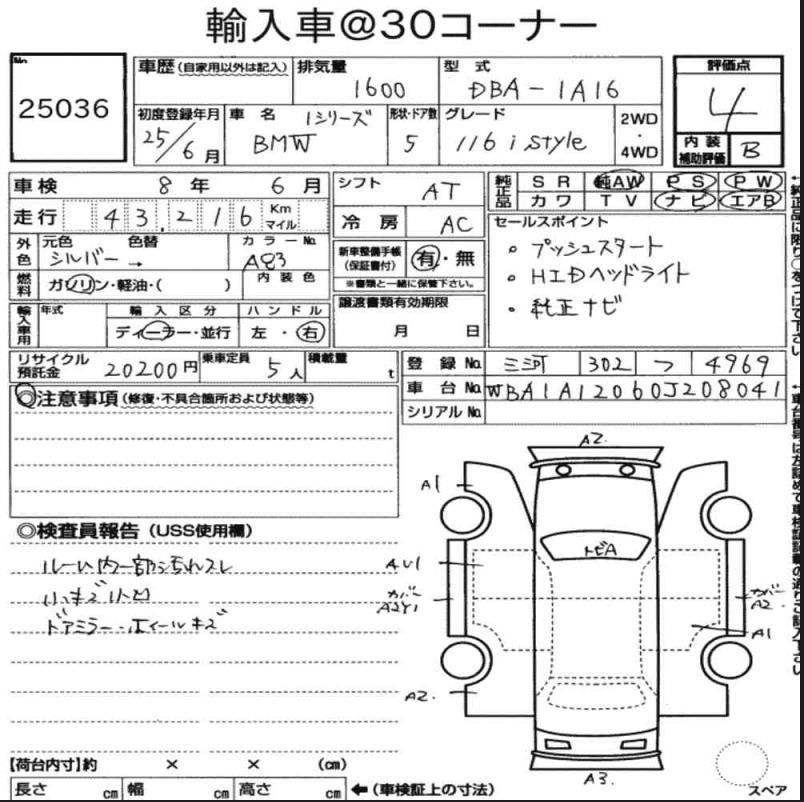 輸入車@30コーナー
No.
25036
車歴 (自家用以外は記入)
排気量
1600
型式
DBA-1A16
評価点
4
初度登録年月
25/6月
車名
1シリーズ
BMW
形状・ドア数
5
グレード
116 i style
2WD
・
4WD
内装
補助評価
B
車検 8年 6月
シフト
AT
純正品
SR 純AW PS PW
カワ TV ナビ エアB
走行
43,216
Km
マイル
冷房
AC
セールスポイント
。プッシュスタート
。HIDヘッドライト
。純正ナビ
外色
元色
シルバー
色替
→
カラーNo.
A83
新車整備手帳
(保証書付)
有・無
※書類と一緒に保管下さい。
燃料
ガソリン・軽油・( )
内装色
譲渡書類有効期限
月 日
輸入車用
年式
輸入区分
ディーラー・並行
ハンドル
左・右
リサイクル
預託金
20200円
乗車定員
5人
積載量
t
登録No. 三河 302 つ 4969
車台No. WBA1A12060J208041
シリアルNo.
◎注意事項 (修復・不具合箇所および状態等)
◎検査員報告 (USS使用欄)
ルーム内一部汚れスレ
小キズ小凹
ドアミラー・ホイールキズ
A2
A1
トビA
AU1
カバー
A2Y1
カバー
A2
A1
A2
A3
スペア
【荷台内寸】約 × × (cm)
長さ cm 幅 cm 高さ cm ←(車検証上の寸法)
←純正品に限り○をつけて下さい
←車台番号は左詰めで車検証記載の通りご記入下さい